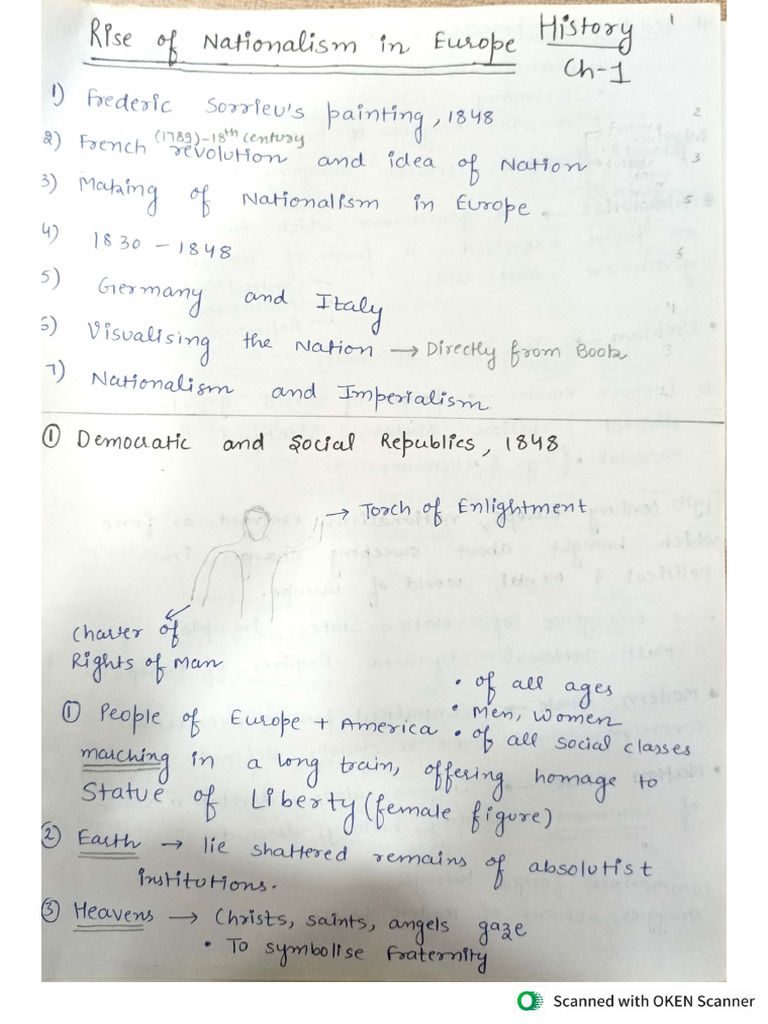 Rise of Nationalism in Europe History 1
Ch-1
1) Frederic Sorrieu's painting, 1848
(1789)-18th century
2) French revolution and idea of Nation
3) Making of Nationalism in Europe
4) 1830 - 1848
5) Germany and Italy
6) Visualising the Nation → Directly from Book
7) Nationalism and Imperialism
① Democratic and Social Republics, 1848
→ Torch of Enlightment
Charter of
Rights of Man
• of all ages
① People of Europe + America • Men, Women
• of all social classes
marching in a long train, offering homage to
Statue of Liberty (female figure)
② Earth → lie shattered remains of absolutist
institutions.
③ Heavens → Christs, saints, angels gaze
• To symbolise fraternity
Scanned with OKEN Scanner